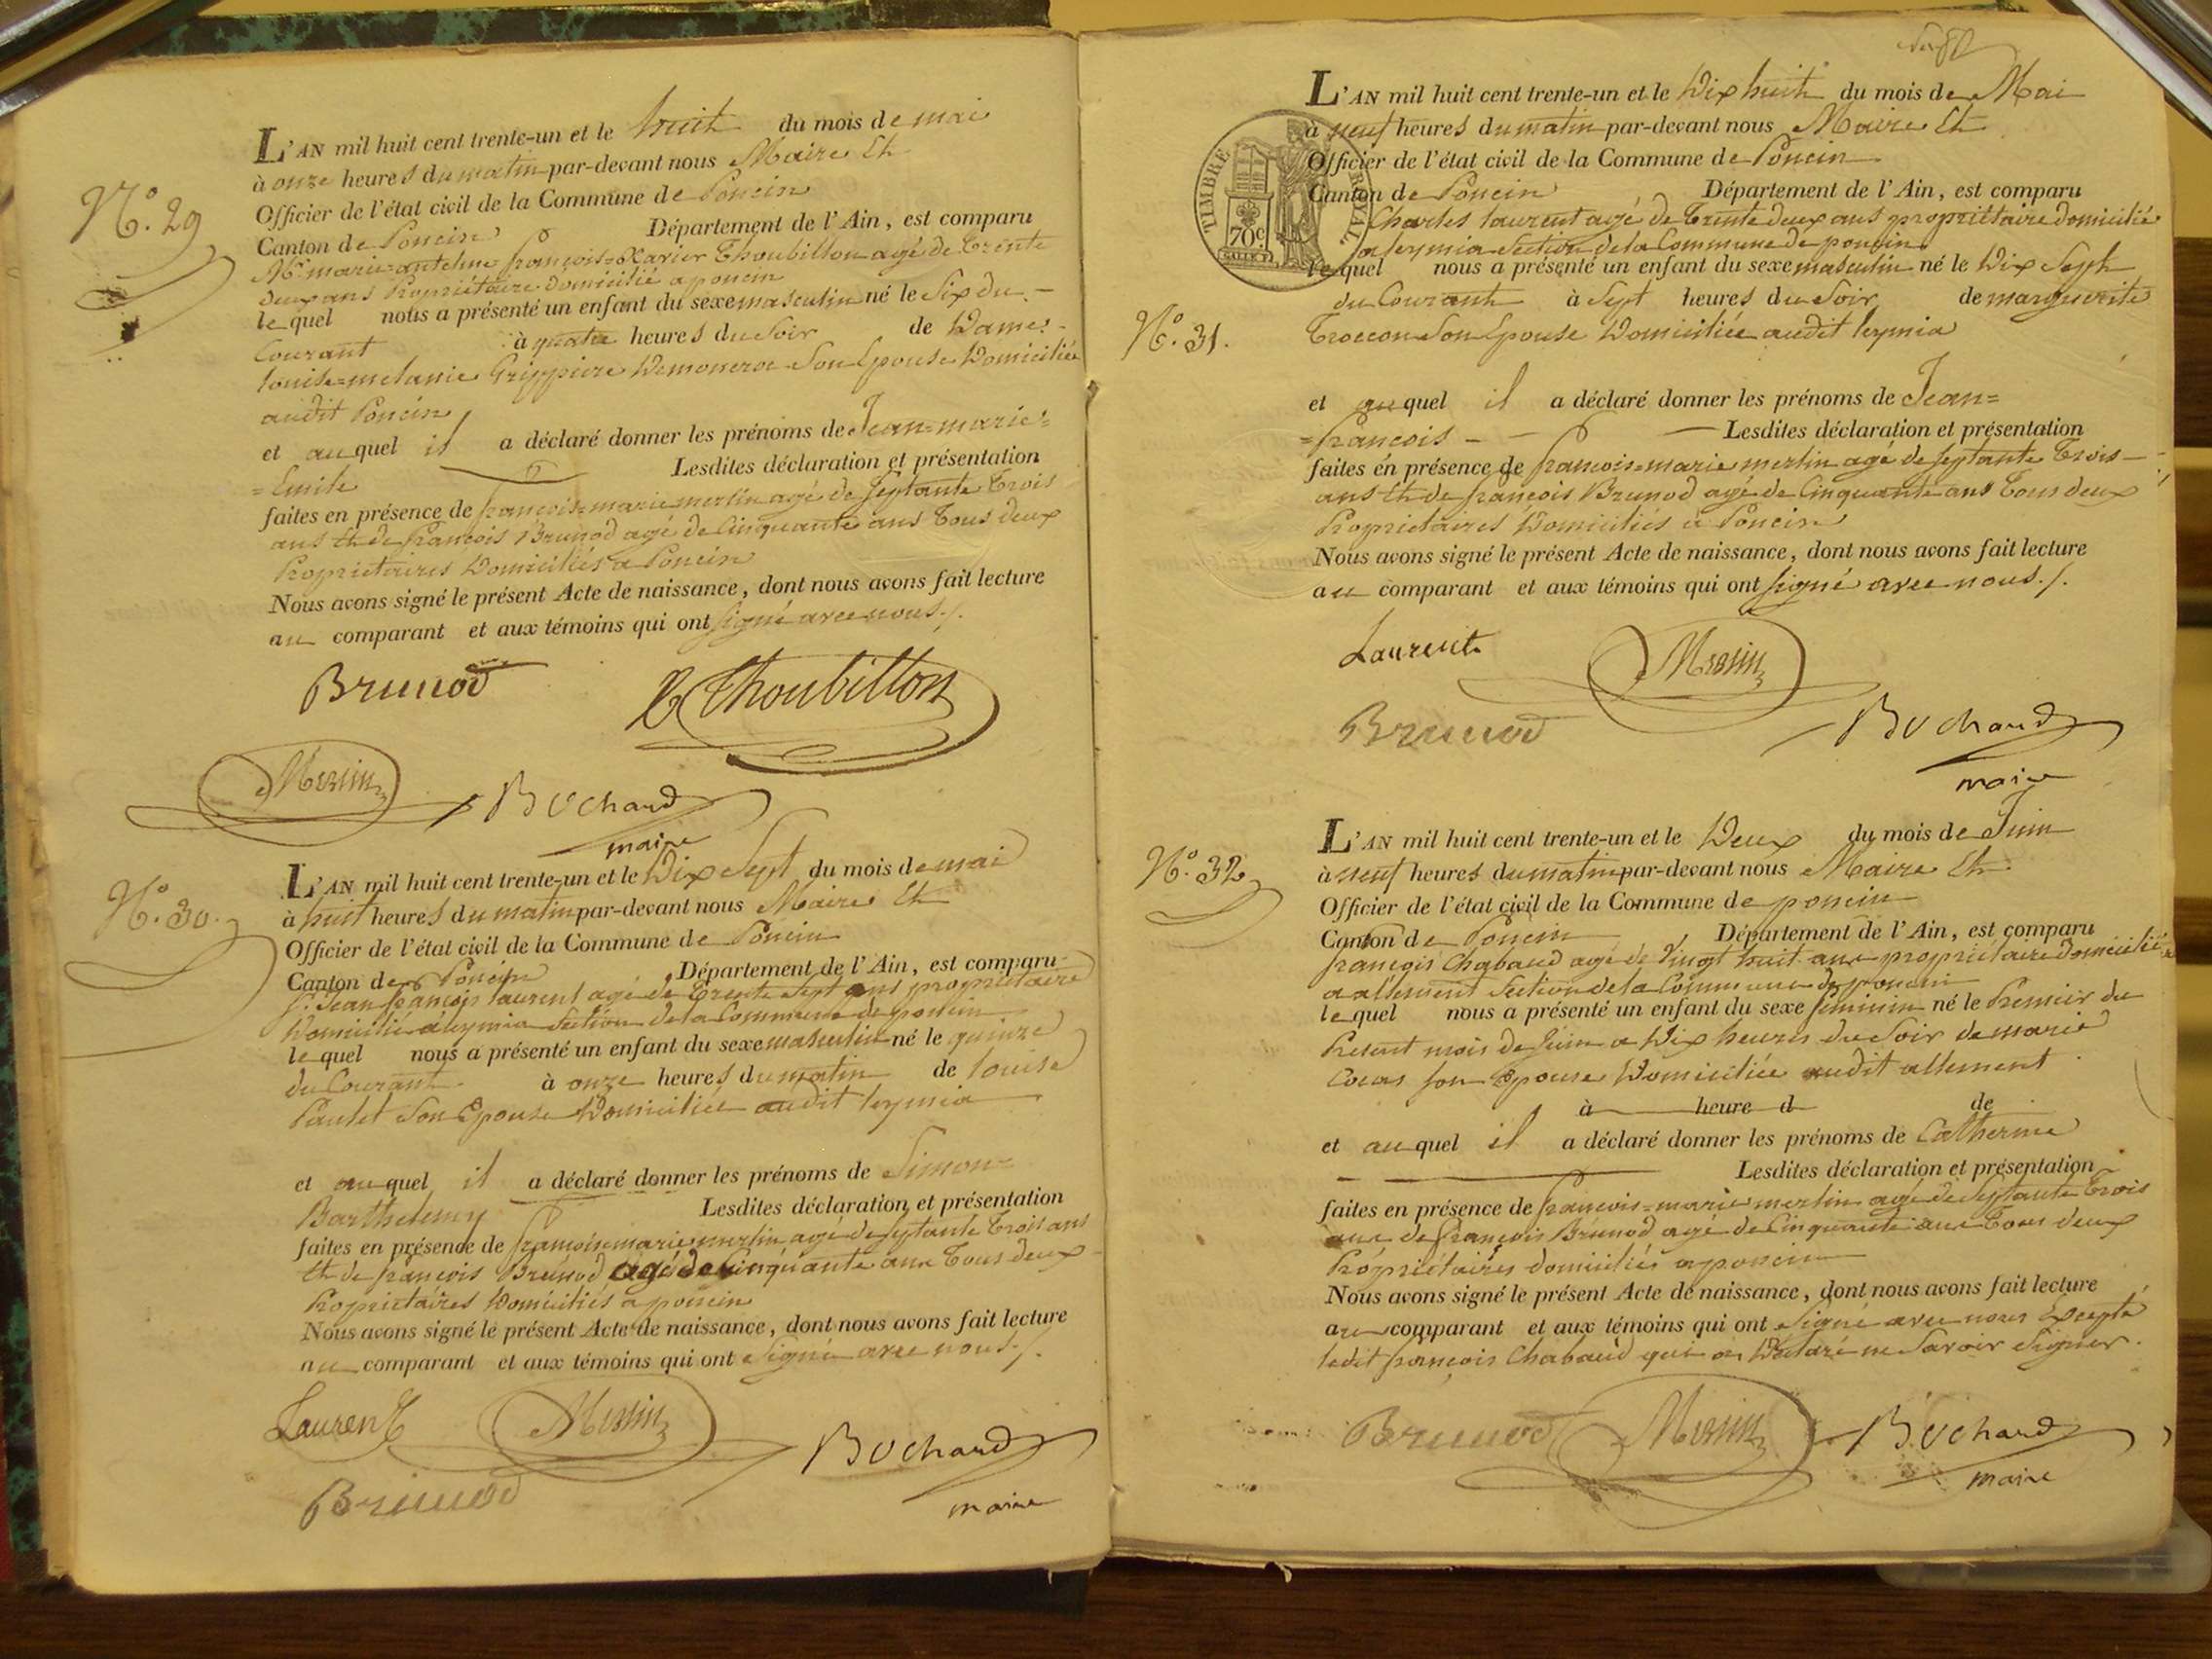 N.º 29
L'AN mil huit cent trente-un et le huit du mois de mai
à onze heures du matin par-devant nous Maire Et
Officier de l'état civil de la Commune de Poncin
Canton de Poncin Département de l'Ain, est comparu
Mr marie=antelme françois=Xavier Thoubillon agé de trente
deux ans Propriétaire domicilié a poncin
lequel nous a présenté un enfant du sexe masculin né le Six du
Courant à quatre heures du Soir de Dame
louise=melanie Grippiere Demoneroc Son Epouse Domiciliée
audit Poncin
et auquel il a déclaré donner les prénoms de Jean=marie=
=Emile Lesdites déclaration et présentation
faites en présence de françois=marie merlin agé de Septante Trois
ans Et de françois Brunod agé de Cinquante ans Tous deux
Propriétaires Domiciliés a Poncin
Nous avons signé le présent Acte de naissance, dont nous avons fait lecture
au comparant et aux témoins qui ont signé avec nous./.
Brunod Thoubillon
Merlin Bochard
maire
N.º 30.
L'AN mil huit cent trente-un et le Dix Sept du mois de mai
à huit heures du matin par-devant nous Maire Et
Officier de l'état civil de la Commune de Poncin
Canton de Poncin Département de l'Ain, est comparu
Sr. Jean françois laurent agé de Trente Sept ans propriétaire
Domicilié a leymia Section de la Commune de poncin
lequel nous a présenté un enfant du sexe masculin né le quinze
du Courant à onze heures du matin de louise
Paulet Son Epouse Domiciliée audit leymia
et auquel il a déclaré donner les prénoms de Simon=
Barthelemy Lesdites déclaration et présentation
faites en présence de françois marie merlin agé de Septante Trois ans
Et de françois Brunod agé de Cinquante ans Tous deux
Propriétaires Domiciliés a poncin
Nous avons signé le présent Acte de naissance, dont nous avons fait lecture
au comparant et aux témoins qui ont Signé avec nous./.
Laurent Merlin Bochard
Brunod maire
TIMBRE ROYAL
70 c
N.º 31.
L'AN mil huit cent trente-un et le Dix huit du mois de Mai
à neuf heures du matin par-devant nous Maire Et
Officier de l'état civil de la Commune de Poncin
Canton de Poncin Département de l'Ain, est comparu
Charles laurent agé de Trente deux ans propriétaire domicilié
a leymia Section de la Commune de poncin
lequel nous a présenté un enfant du sexe masculin né le Dix Sept
du Courant à Sept heures du Soir de marguerite
Troccon Son Epouse Domiciliée audit leymia
et auquel il a déclaré donner les prénoms de Jean=
=françois Lesdites déclaration et présentation
faites en présence de françois=marie merlin agé de Septante Trois
ans Et de françois Brunod agé de Cinquante ans Tous deux
Propriétaires Domiciliés à Poncin
Nous avons signé le présent Acte de naissance, dont nous avons fait lecture
au comparant et aux témoins qui ont signé avec nous./.
Laurent Merlin
Brunod Bochard
maire
N.º 32
L'AN mil huit cent trente-un et le Deux du mois de Juin
à neuf heures du matin par-devant nous Maire Et
Officier de l'état civil de la Commune de poncin
Canton de Poncin Département de l'Ain, est comparu
françois Chabaud agé de Vingt huit ans propriétaire domicilié
a allement Section de la Commune de poncin
lequel nous a présenté un enfant du sexe feminin né le Premier du
Présent mois de Juin a Dix heures du Soir de marie
Cocas son Epouse Domiciliée audit allement
à heure d de
et auquel il a déclaré donner les prénoms de Catherine
Lesdites déclaration et présentation
faites en présence de françois=marie merlin agé de Septante Trois
ans de françois Brunod agé de Cinquante ans Tous deux
Propriétaires domiciliés a poncin
Nous avons signé le présent Acte de naissance, dont nous avons fait lecture
au comparant et aux témoins qui ont Signé avec nous Excepté
ledit françois Chabaud qui a Déclaré ne Savoir Signer.
Brunod Merlin Bochard
maire